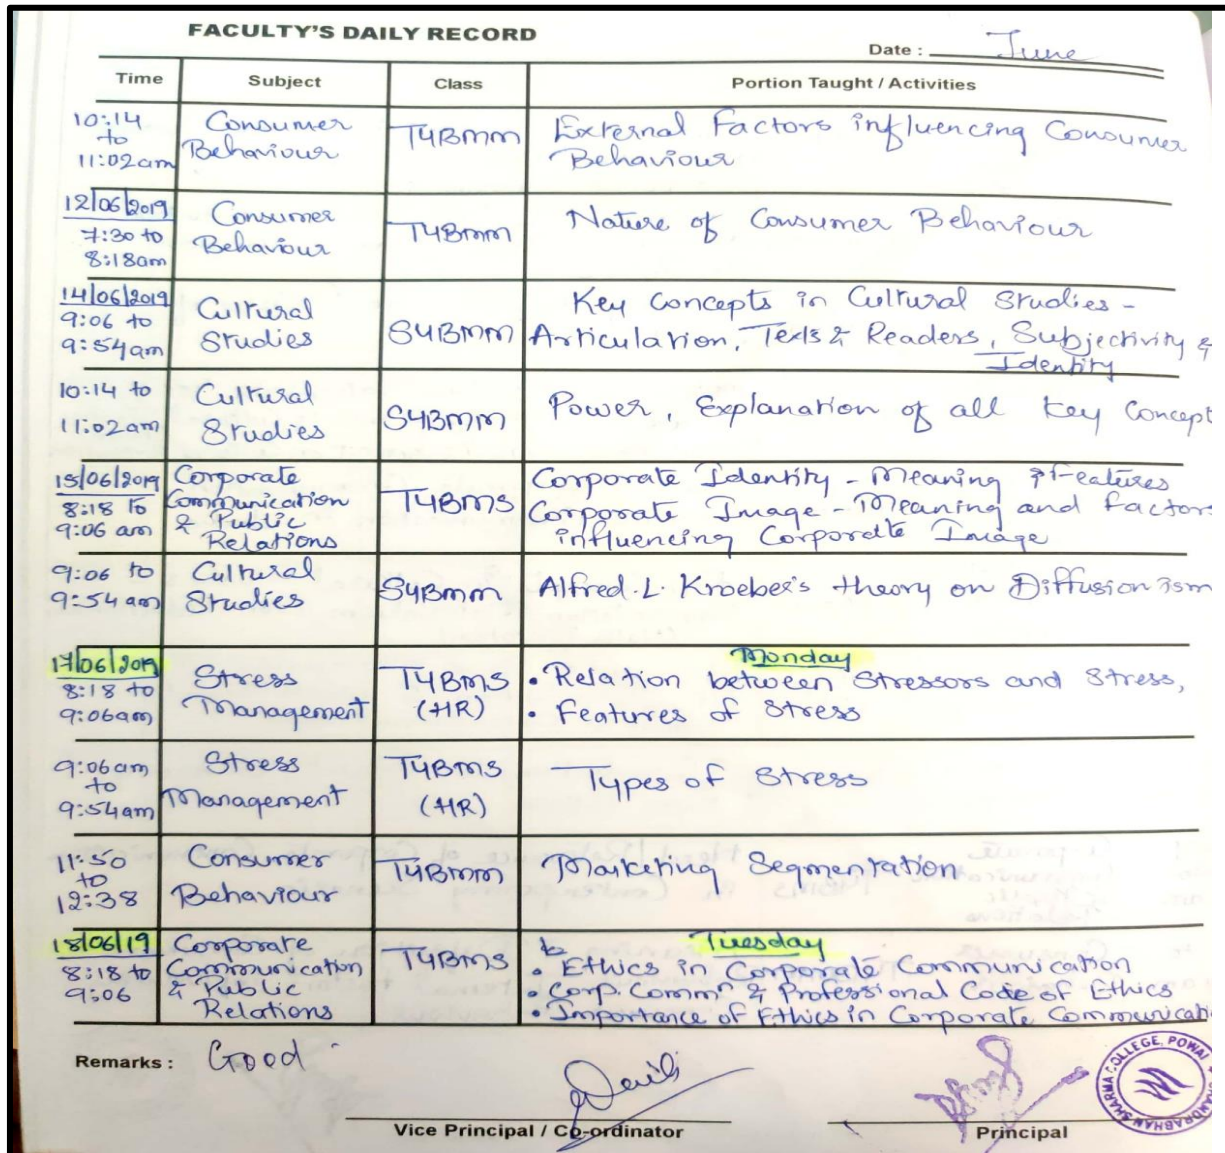 FACULTY'S DAILY RECORD
Date : June
Time Subject Class Portion Taught / Activities
10:14 to 11:02am Consumer Behaviour TYBMM External Factors influencing Consumer Behaviour
12/06/2019 7:30 to 8:18am Consumer Behaviour TYBMM Nature of Consumer Behaviour
14/06/2019 9:06 to 9:54am Cultural Studies SYBMM Key Concepts in Cultural Studies - Articulation, Texts & Readers, Subjectivity & Identity
10:14 to 11:02am Cultural Studies SYBMM Power, Explanation of all key Concept
15/06/2019 8:18 to 9:06 am Corporate Communication & Public Relations TYBMS Corporate Identity - Meaning & Features Corporate Image - Meaning and Factors influencing Corporate Image
9:06 to 9:54am Cultural Studies SYBMM Alfred. L. Kroeber's theory on Diffusionism
17/06/2019 8:18 to 9:06am Stress Management TYBMS (HR) Monday • Relation between Stressors and Stress, • Features of Stress
9:06am to 9:54am Stress Management TYBMS (HR) Types of Stress
11:50 to 12:38 Consumer Behaviour TYBMM Marketing Segmentation
18/06/19 8:18 to 9:06 Corporate Communication & Public Relations TYBMS Tuesday • Ethics in Corporate Communication • Corp. Commn & Professional Code of Ethics • Importance of Ethics in Corporate Communicati
Remarks : Good
Vice Principal / Co-ordinator
Principal
CHANDRABHAN SHARMA COLLEGE, POWAI